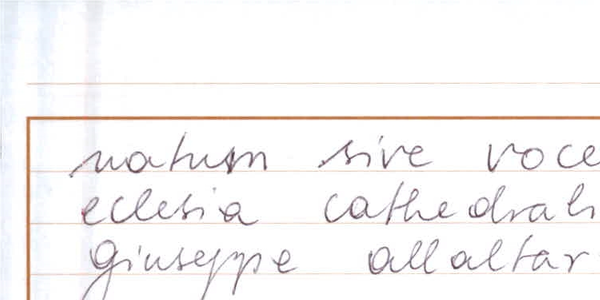 natum sive voce
eclesia cathedrali
Giuseppe all altar